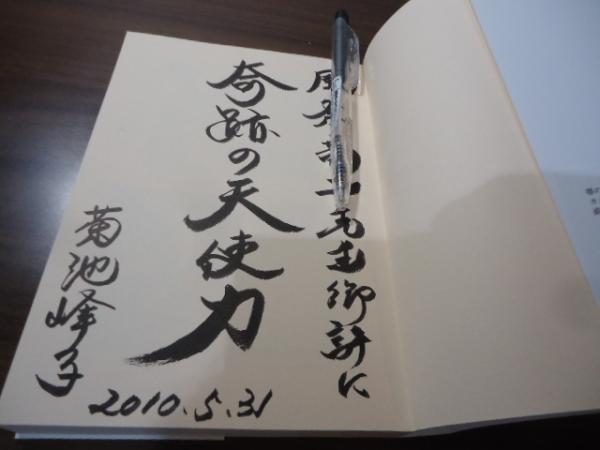 先生御許に
奇跡の天使力
菊池峰子
2010.5.31